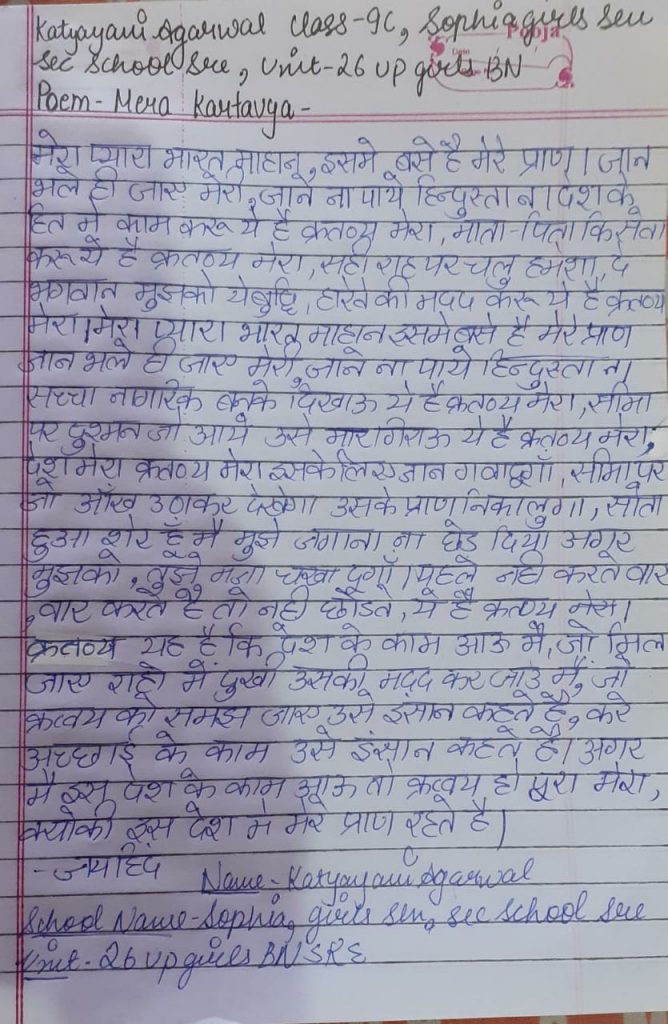 Katyayani Agarwal Class-9C, Sophia girls Sen
Sec School Sre, Unit-26 UP girls BN
Pooja
Date
Poem- Mera Kartavya -
मेरा प्यारा भारत माहान, इसमे बसे है मेरे प्राण । जान
भले ही जाए मेरी, जाने ना पाये हिन्दुस्तान । देश के
हित मे काम करू ये है क्रतव्य मेरा, माता-पिता कि सेवा
करू ये है क्रतव्य मेरा, सही राह पर चलु हमेशा, दे
भगवान मुझको ये बुद्धि, हारे की मदद करू ये है क्रतव्य
मेरा । मेरा प्यारा भारत माहान इसमे बसे है मेरे प्राण
जान भले ही जाए मेरी, जाने ना पाये हिन्दुस्तान ।
सच्चा नागरिक बनके दिखाऊ ये है क्रतव्य मेरा, सीमा
पर दुश्मन जो आये उसे मार गिराऊ ये है क्रतव्य मेरा,
देश मेरा क्रतव्य मेरा इसके लिए जान गवादूगाँ, सीमा पर
जो आँख उठाकर देखेगा उसके प्राण निकालुगा, सोता
हुआ शेर हूँ मै मुझे जगाना ना छेड़ दिया अगर
मुझको, तुझे मजा चखा दूगाँ । पहले नही करते वार
, वार करते है तो नही छोडते, ये है क्रतव्य मेरा ।
क्रतव्य यह है कि देश के काम आऊ मै, जो मिल
जाए राहो में दुखी उसकी मदद कर जाउ मै, जो
क्रत्वय को समझ जाए उसे इंसान कहते है, करे
अच्छाई के काम उसे इंसान कहते है। अगर
मै इस देश के काम आऊ तो क्रत्वय हो पूरा मेरा,
क्योकी इस देश मे मेरे प्राण रहते है।
- जयहिंद Name- Katyayani Agarwal
School Name- Sophia girls Sen, sec school Sre
Unit- 26 UP girls BN SRE